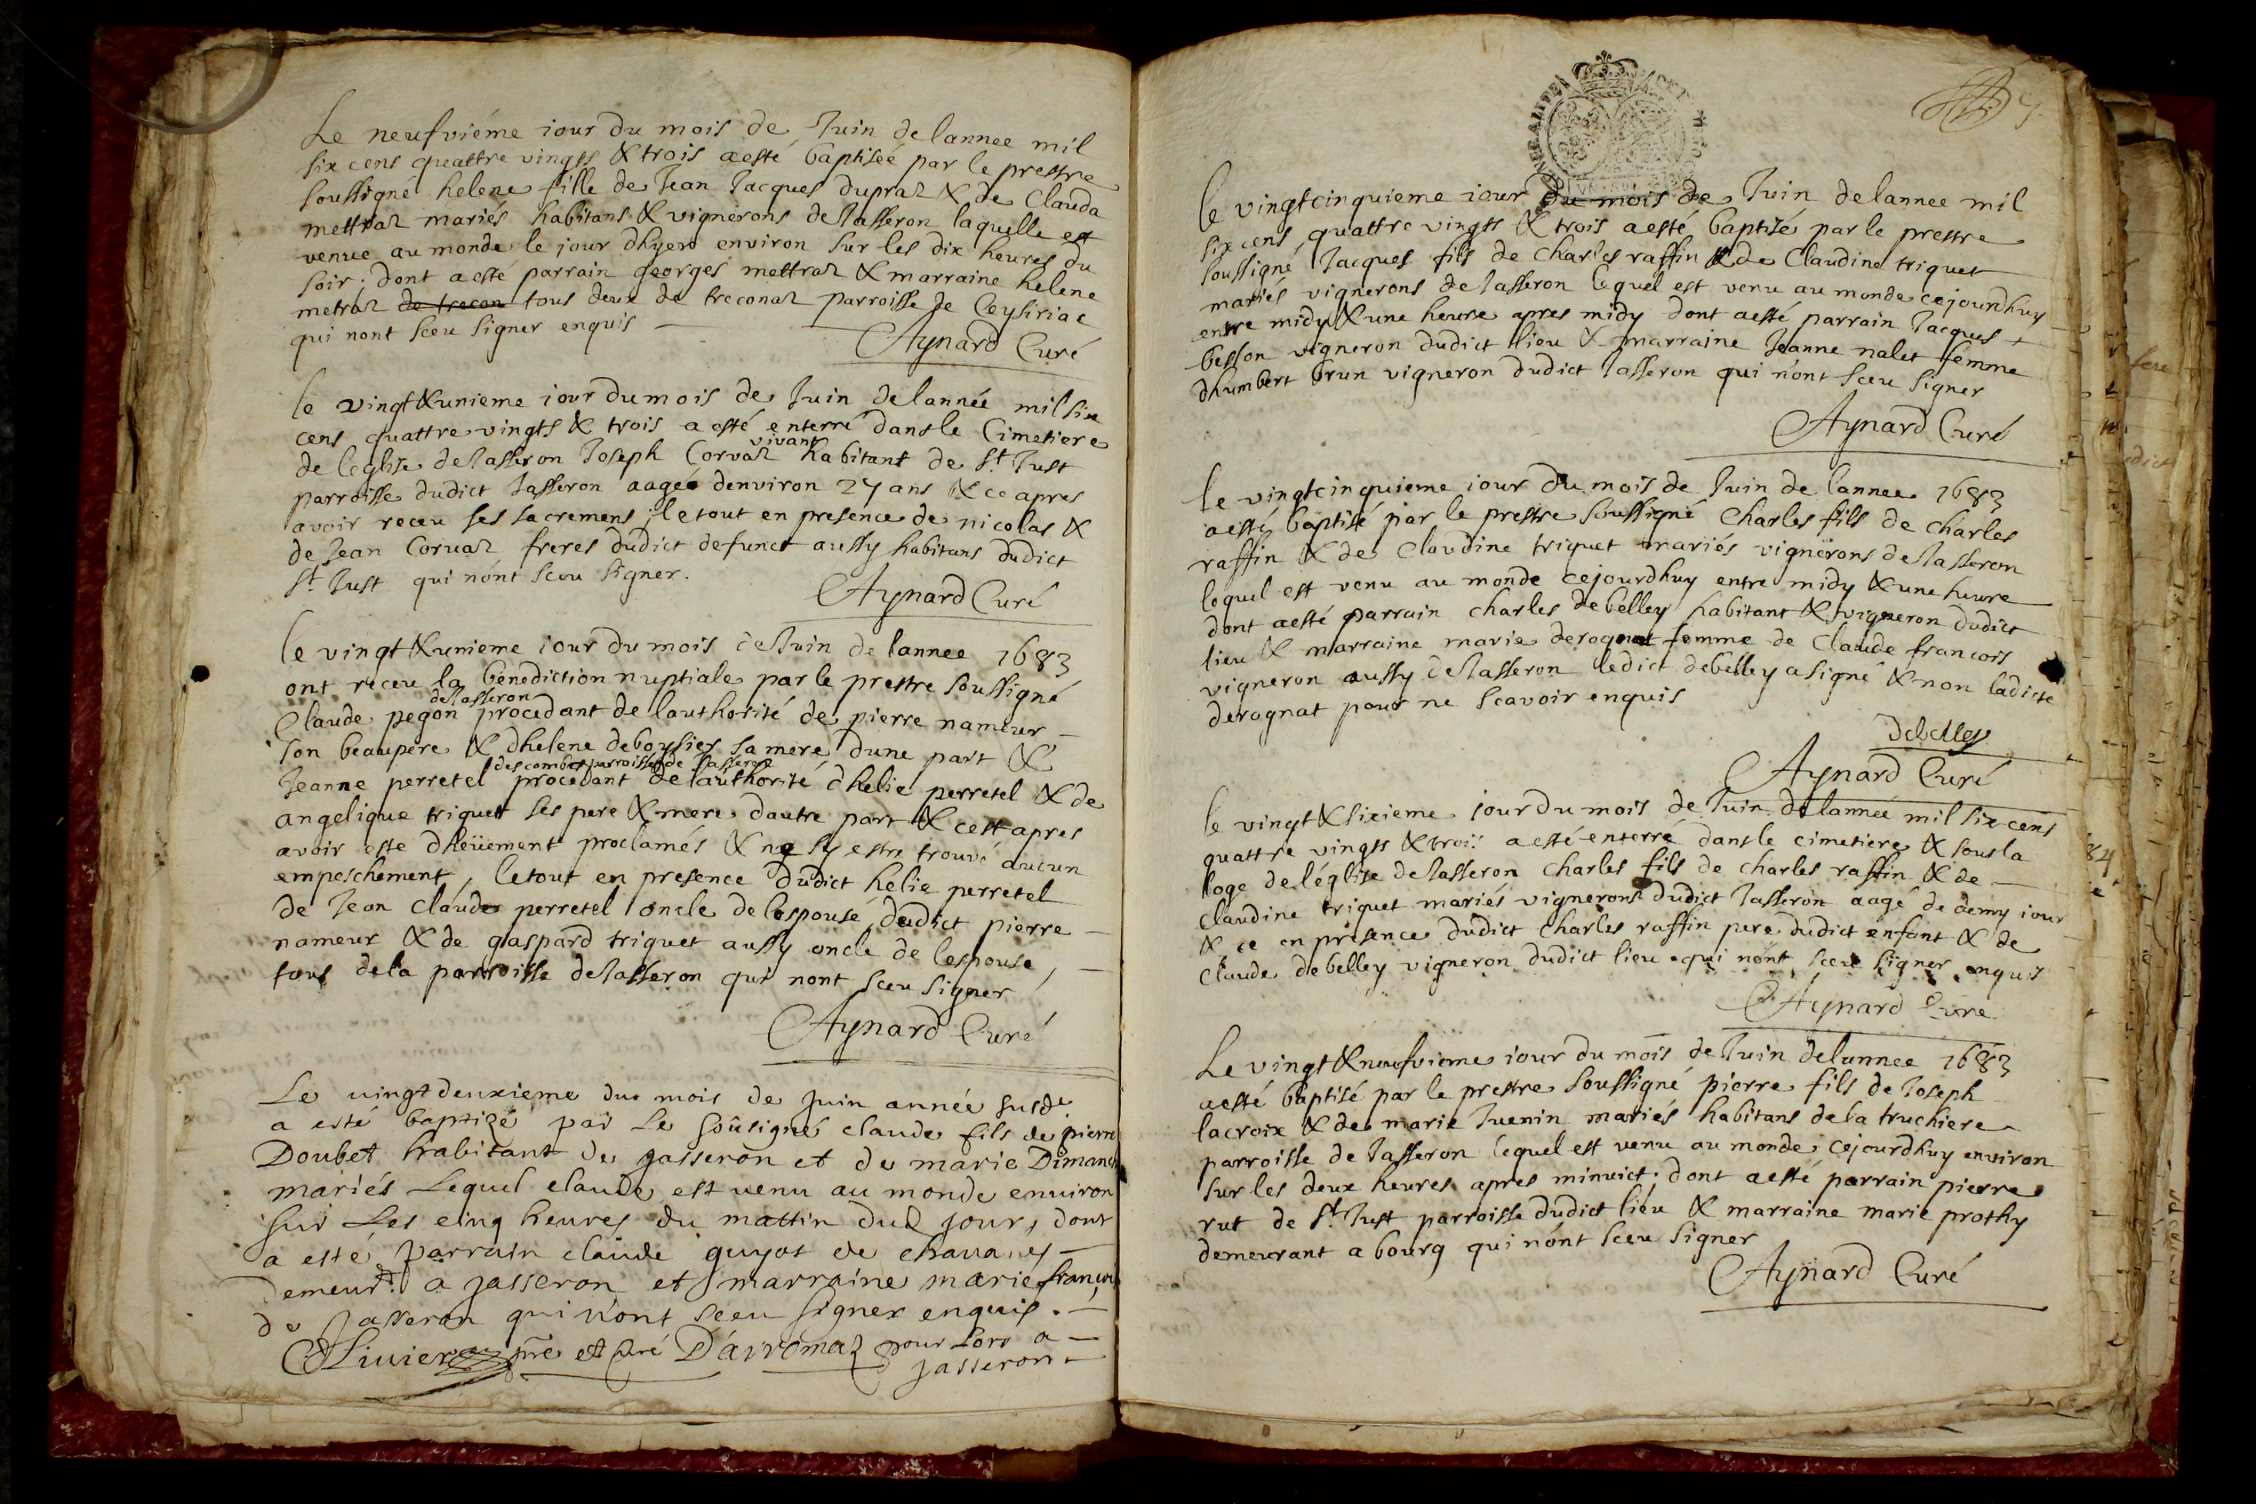 Le neufviéme iour du mois de Juin de lannee mil
six cens quattre vingts & trois aesté baptiseé par le prestre
soussigné helene fille de Jean Jacques dupraz & de Clauda
mettraz mariés habitans & vignerons de Jasseron laquelle est
venue au monde le jour dhyer environ sur les dix heures du
soir. dont a esté parrain georges mettraz & marraine helene
metraz de trecon tous deux de treconaz parroisse de Ceysiriae
qui nont sceu signer enquis
Aynard Curé
le vingt & unieme iour du mois de Juin de lannée mil six
cens quattre vingts & trois a esté enterré dans le Cimetiere
vivant
de leglise de Jasseron Joseph Corvaz habitant de St Just
parroisse dudict Jasseron aagée denviron 27 ans & ce apres
avoir receu ses sacremens, le tout en presence de nicolas &
de Jean Corvaz freres dudict defunct aussy habitans dudict
St Just qui nónt sceu signer.
Aynard Curé
le vingt & unieme iour du mois de Juin de lannee 1683
ont receu la benediction nuptiale par le prestre soussigné
de Jasseron
Claude pegon procedant de lauthorité de pierre nameur
son beaupere & dhelene deboysier sa mere dune part &
des combes parroisse de Jasseron
Jeanne perretel procedant de lauthorité dhelie perretel & de
angelique triquet ses pere & mere dautre part & cest apres
avoir esté dheüement proclamés & ne sy estre trouvé aucun
empeschement, le tout en presence dudict helie perretel
de Jean claude perretel oncle de lespouse, dudict pierre
nameur & de gaspard triquet aussy oncle de lespouse,
tous de la parroisse de Jasseron qui nont sceu signer
Aynard Curé
Le vingt deuxieme du mois de juin année susde
a esté baptizé par Le soûsigné claude fils de pierre
Doubet habitant de jasseron et de marie Dimanch
mariés Lequel claude est venu au monde environ
sur Les cinq heures du mattin dud jour, dont
a esté parrain claude guyot de chavanes
demeurt. a jasseron et marraine marie françois
de Jasseron qui n'ont sceu signer enquis.
OLivier pre et Curé Dárromaz pour Lors a
jasseron
le vingtcinquieme iour du mois de Juin de lannee mil
six cens quattre vingts & trois aesté baptisé par le prestre
soussigné Jacques fils de charles raffin & de Claudine triquet
mariés vignerons de Jasseron lequel est venu au monde cejourdhuy
entre midy & une heure apres midy dont aesté parrain Jacques
besson vigneron dudict lieu & marraine Jeanne nalet femme
dhumbert brun vigneron dudict Jasseron qui nónt sceu signer
Aynard Curé
le vingtcinquieme iour du mois de Juin de lannee 1683
aesté baptisé par le prestre soussigné Charles fils de charles
raffin & de Claudine triquet mariés vignerons de Jasseron
lequel est venu au monde cejourdhuy entre midy & une heure
dont aesté parrain charles debelley habitant & vigneron dudict
lieu & marraine marie derognat femme de Claude francois
vigneron aussy de Jasseron ledict debelley a signé & non ladicte
derognat pour ne scavoir enquis
Debelley
Aynard Curé
le vingt & sixieme jour du mois de Juin de lannée mil six cens
quattre vingts & trois aesté enterré dans le cimetiere & sous la
loge de léglise de Jasseron charles fils de charles raffin & de
claudine triquet mariés vignerons dudict Jasseron aagé de demy iour
& ce en présence dudict charles raffin pere dudict enfant & de
claude debelley vigneron dudict lieu qui nónt sceu signer enquis
Aynard Curé
Le vingt & neufvieme iour du mois de Juin de lannee 1683
aesté baptisé par le prestre soussigné pierre fils de Joseph
lacroix & de marie Juenin mariés habitans de la truchiere
parroisse de Jasseron lequel est venu au monde cejourdhuy environ
sur les deux heures apres minuict; dont aesté parrain pierre
rut de St Just parroisse dudict liéu & marraine marie prothy
demeurant a bourg qui nónt sceu signer
Aynard Curé